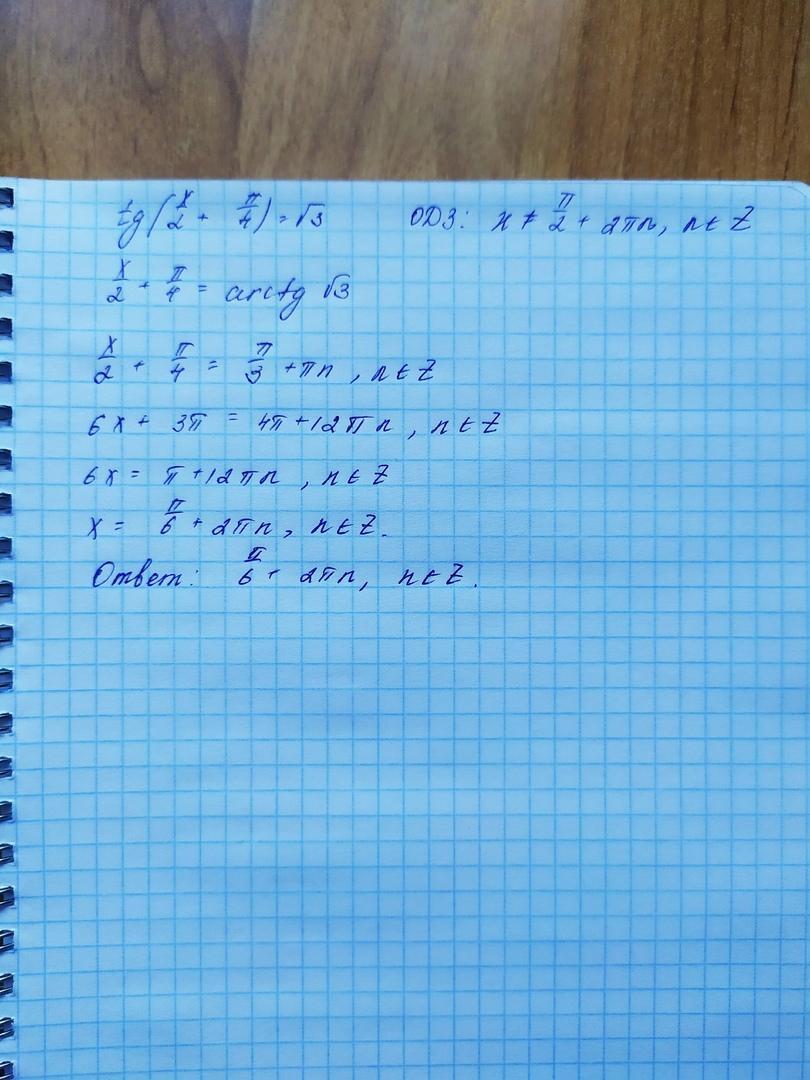 tg(x/2 + π/4) = √3 ОДЗ: x ≠ π/2 + 2πn, n ∈ Z
x/2 + π/4 = arctg √3
x/2 + π/4 = π/3 + πn, n ∈ Z
6x + 3π = 4π + 12πn, n ∈ Z
6x = π + 12πn, n ∈ Z
x = π/6 + 2πn, n ∈ Z.
Ответ: π/6 + 2πn, n ∈ Z.